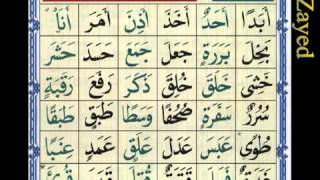 أَبَدًا أَحَدٌ أَخَذَ أَذِنَ أَمَرَ أَنَا
بَخِلَ بَرَرَةٍ جَعَلَ جَمَعَ حَسَدَ حَشَرَ
خَشِيَ خَلَقَ خُلِقَ ذَكَرَ رَفَعَ رَقَبَةٍ
سُرُرٌ سَفَرَةٍ صُحُفًا وَسَطًا طَبَقٍ طَبَقًا
طُوًى عَبَسَ عَدَلَ عَلَقٍ عَمَدٍ عِنَبًا
Zayed